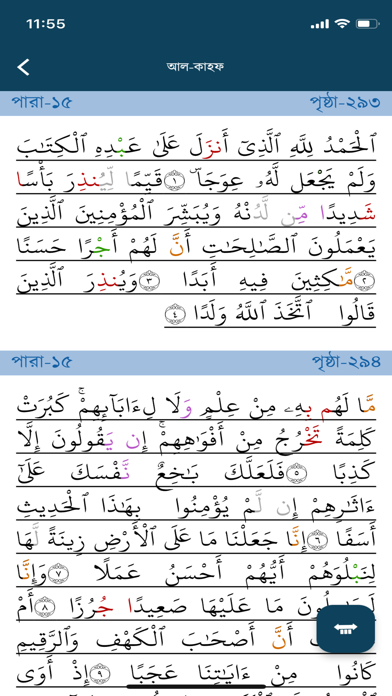 11:55
আল-কাহফ
পারা-১৫ পৃষ্ঠা-২৯৩
ٱلْحَمْدُ لِلَّهِ ٱلَّذِىٓ أَنزَلَ عَلَىٰ عَبْدِهِ ٱلْكِتَـٰبَ
وَلَمْ يَجْعَل لَّهُۥ عِوَجَاۜ ١ قَيِّمًا لِّيُنذِرَ بَأْسًا
شَدِيدًا مِّن لَّدُنْهُ وَيُبَشِّرَ ٱلْمُؤْمِنِينَ ٱلَّذِينَ
يَعْمَلُونَ ٱلصَّـٰلِحَـٰتِ أَنَّ لَهُمْ أَجْرًا حَسَنًا
٢ مَّـٰكِثِينَ فِيهِ أَبَدًا ٣ وَيُنذِرَ ٱلَّذِينَ
قَالُوا۟ ٱتَّخَذَ ٱللَّهُ وَلَدًا ٤
পারা-১৫ পৃষ্ঠা-২৯৪
مَّا لَهُم بِهِۦ مِنْ عِلْمٍ وَلَا لِـَٔابَآئِهِمْ ۚ كَبُرَتْ
كَلِمَةً تَخْرُجُ مِنْ أَفْوَٰهِهِمْ ۚ إِن يَقُولُونَ إِلَّا
كَذِبًا ٥ فَلَعَلَّكَ بَـٰخِعٌ نَّفْسَكَ عَلَىٰٓ
ءَاثَـٰرِهِمْ إِن لَّمْ يُؤْمِنُوا۟ بِهَـٰذَا ٱلْحَدِيثِ
أَسَفًا ٦ إِنَّا جَعَلْنَا مَا عَلَى ٱلْأَرْضِ زِينَةً لَّهَا
لِنَبْلُوَهُمْ أَيُّهُمْ أَحْسَنُ عَمَلًا ٧ وَإِنَّا
لَجَـٰعِلُونَ مَا عَلَيْهَا صَعِيدًا جُرُزًا ٨ أَمْ
أَنَّ أَصْحَـٰبَ ٱلْكَهْفِ وَٱلرَّقِيمِ
كَانُوا۟ مِنْ ءَايَـٰتِنَا عَجَبًا ٩ إِذْ أَوَى